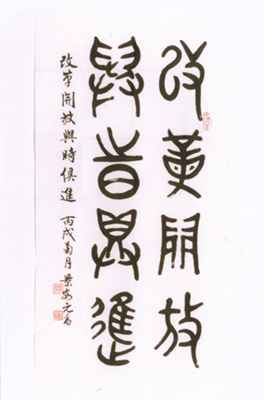 改革開放
與時俱進
改革開放與時俱進 丙戌菊月